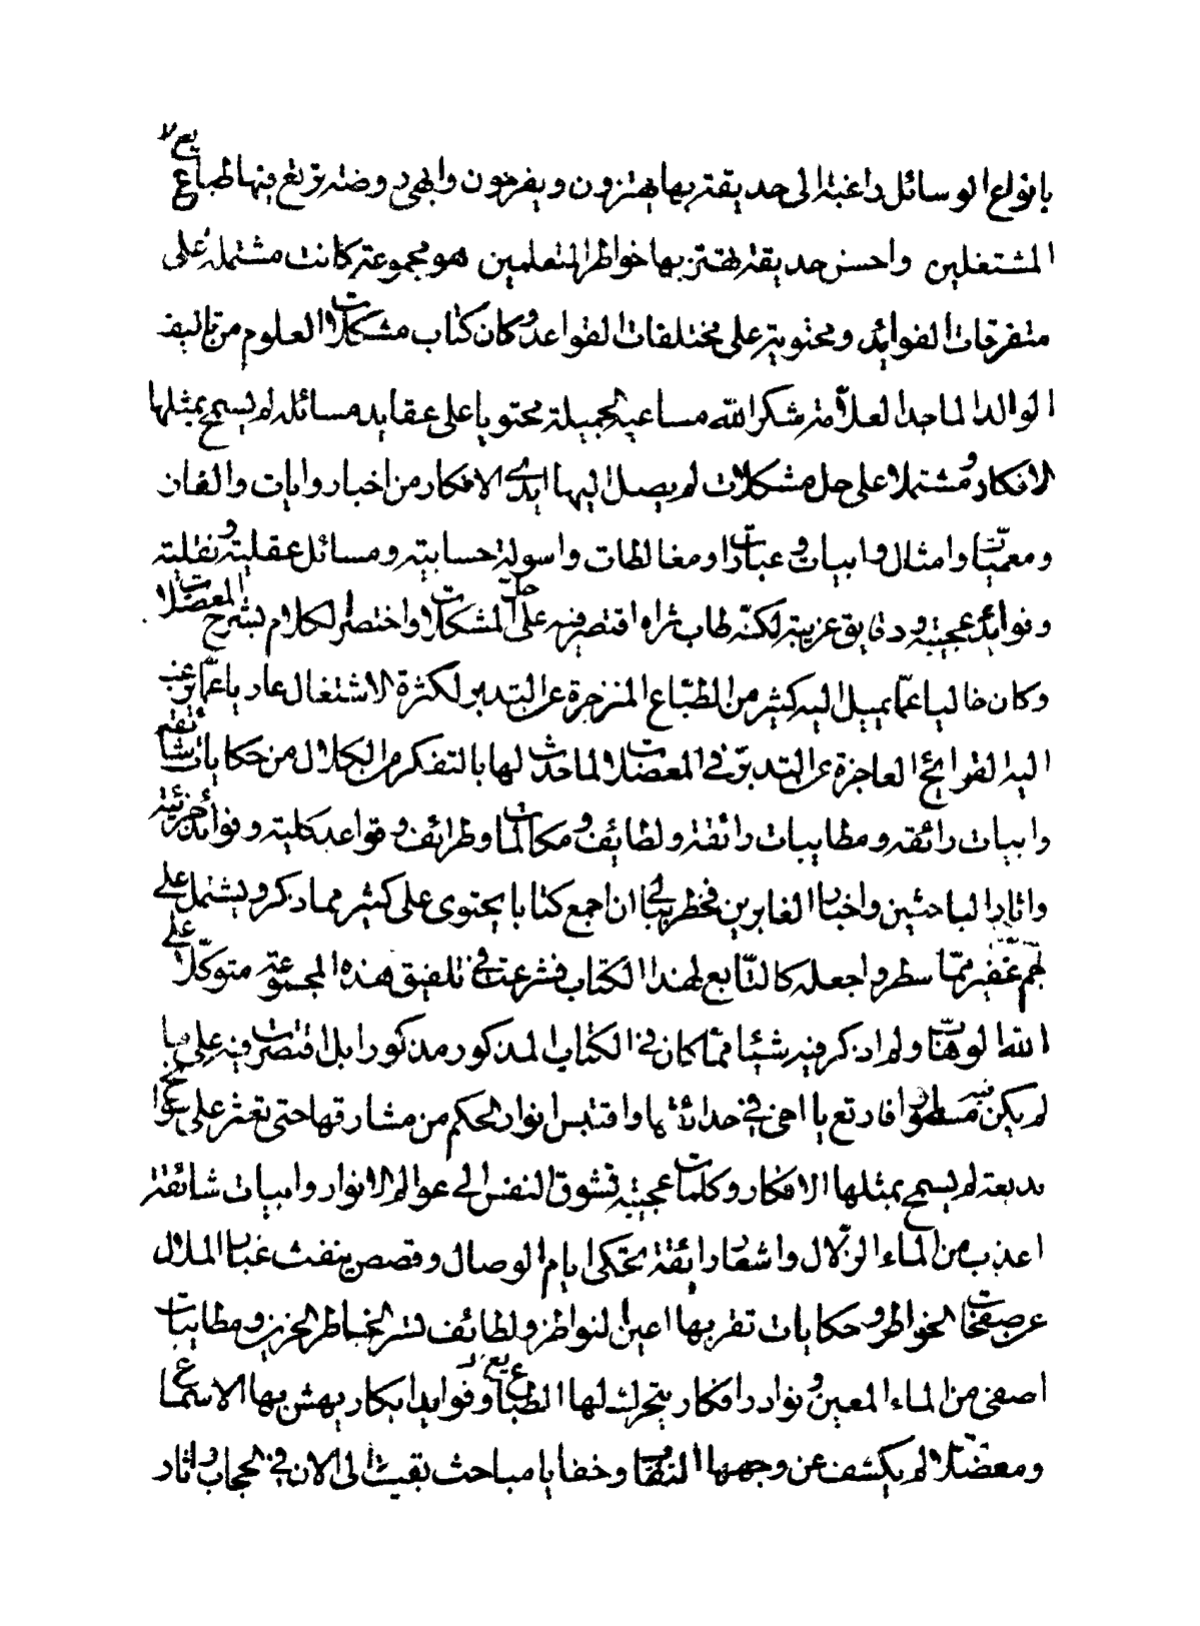 بانواع الوسائل راغبة الى حديقة بها يهتزون ويفرحون وابهى روضة ترتع فيها طباع
المشتغلين واحسن حديقة تهتز بها خواطر المتعلمين هو مجموعة كانت مشتملة على
متفرقات الفوائد ومحتوية على مختلفات القواعد وكان كتاب مشكلات العلوم من تاليف
الوالد الماجد العلّامة شكر الله مساعيه الجميلة محتويا على عقايد مسائل لم يسمح بمثلها
الافكار ومشتملا على حل مشكلات لم يصل اليها ايدي الافكار من اخبار وايات والغاز
ومعميّات وامثال وابيات وعبارات ومغالطات واسولة حسابية ومسائل عقلية ونقلية
وفوايد عجيبة ودقايق غريبة لكنه طاب ثراه اقتصر فيه على حلّ المشكلات واختصر الكلام بشرح المعضلات
وكان خاليا عمّا يميل اليه كثير من الطبّاع المنزجرة عن التدبر لكثرة الاشتغال عاريا عمّا يرغب
اليه القرايح العاجزة عن التدبّر في المعضلات لما حدث لها بالتفكر من الكلال من حكايات شائقة
وابيات رائقة ومطايبات رائقة ولطائف ومكالمات وظرائف وقواعد كلية وفوائد جزئية
واثار الباحثين واخبار الغابرين فخطر ببالي ان اجمع كتابا يحتوى على كثير مما ذكر ويشتمل على
جم غفير ممّا سطر واجعله كالتّابع لهذا الكتاب فشرعت في تلفيق هذه المجموعة متوكّلا على
الله الوهّاب ولم اذكر فيه شيئا ممّا كان في الكتاب المذكور مذكورا بل اقتصرت فيه على ما
لم يكن فيه مسطورا فارتع يا اخى في حدائقها واقتبس انوار الحكم من مشارقها حتى تعثر على
بديعة لم يسمح بمثلها الافكار وكلمات عجيبة تشوق النفس الى عوالم الانوار وابيات شائقة
اعذب من الماء الزلّال واشعار رائقة تحكى ايام الوصال وقصص ينفث غبار الملال
عن صفحات الخواطر وحكايات تقر بها اعين النواظر ولطائف تسر الخاطر الحزين ومطايبات
اصفى من الماء المعين ونوادر افكار يتحرك لها الطباع وفوايد ابكار يهش بها الاسماع
ومعضّلات لم يكشف عن وجهها النقاب وخفايا مباحث بقيت الى الان في الحجاب واثار